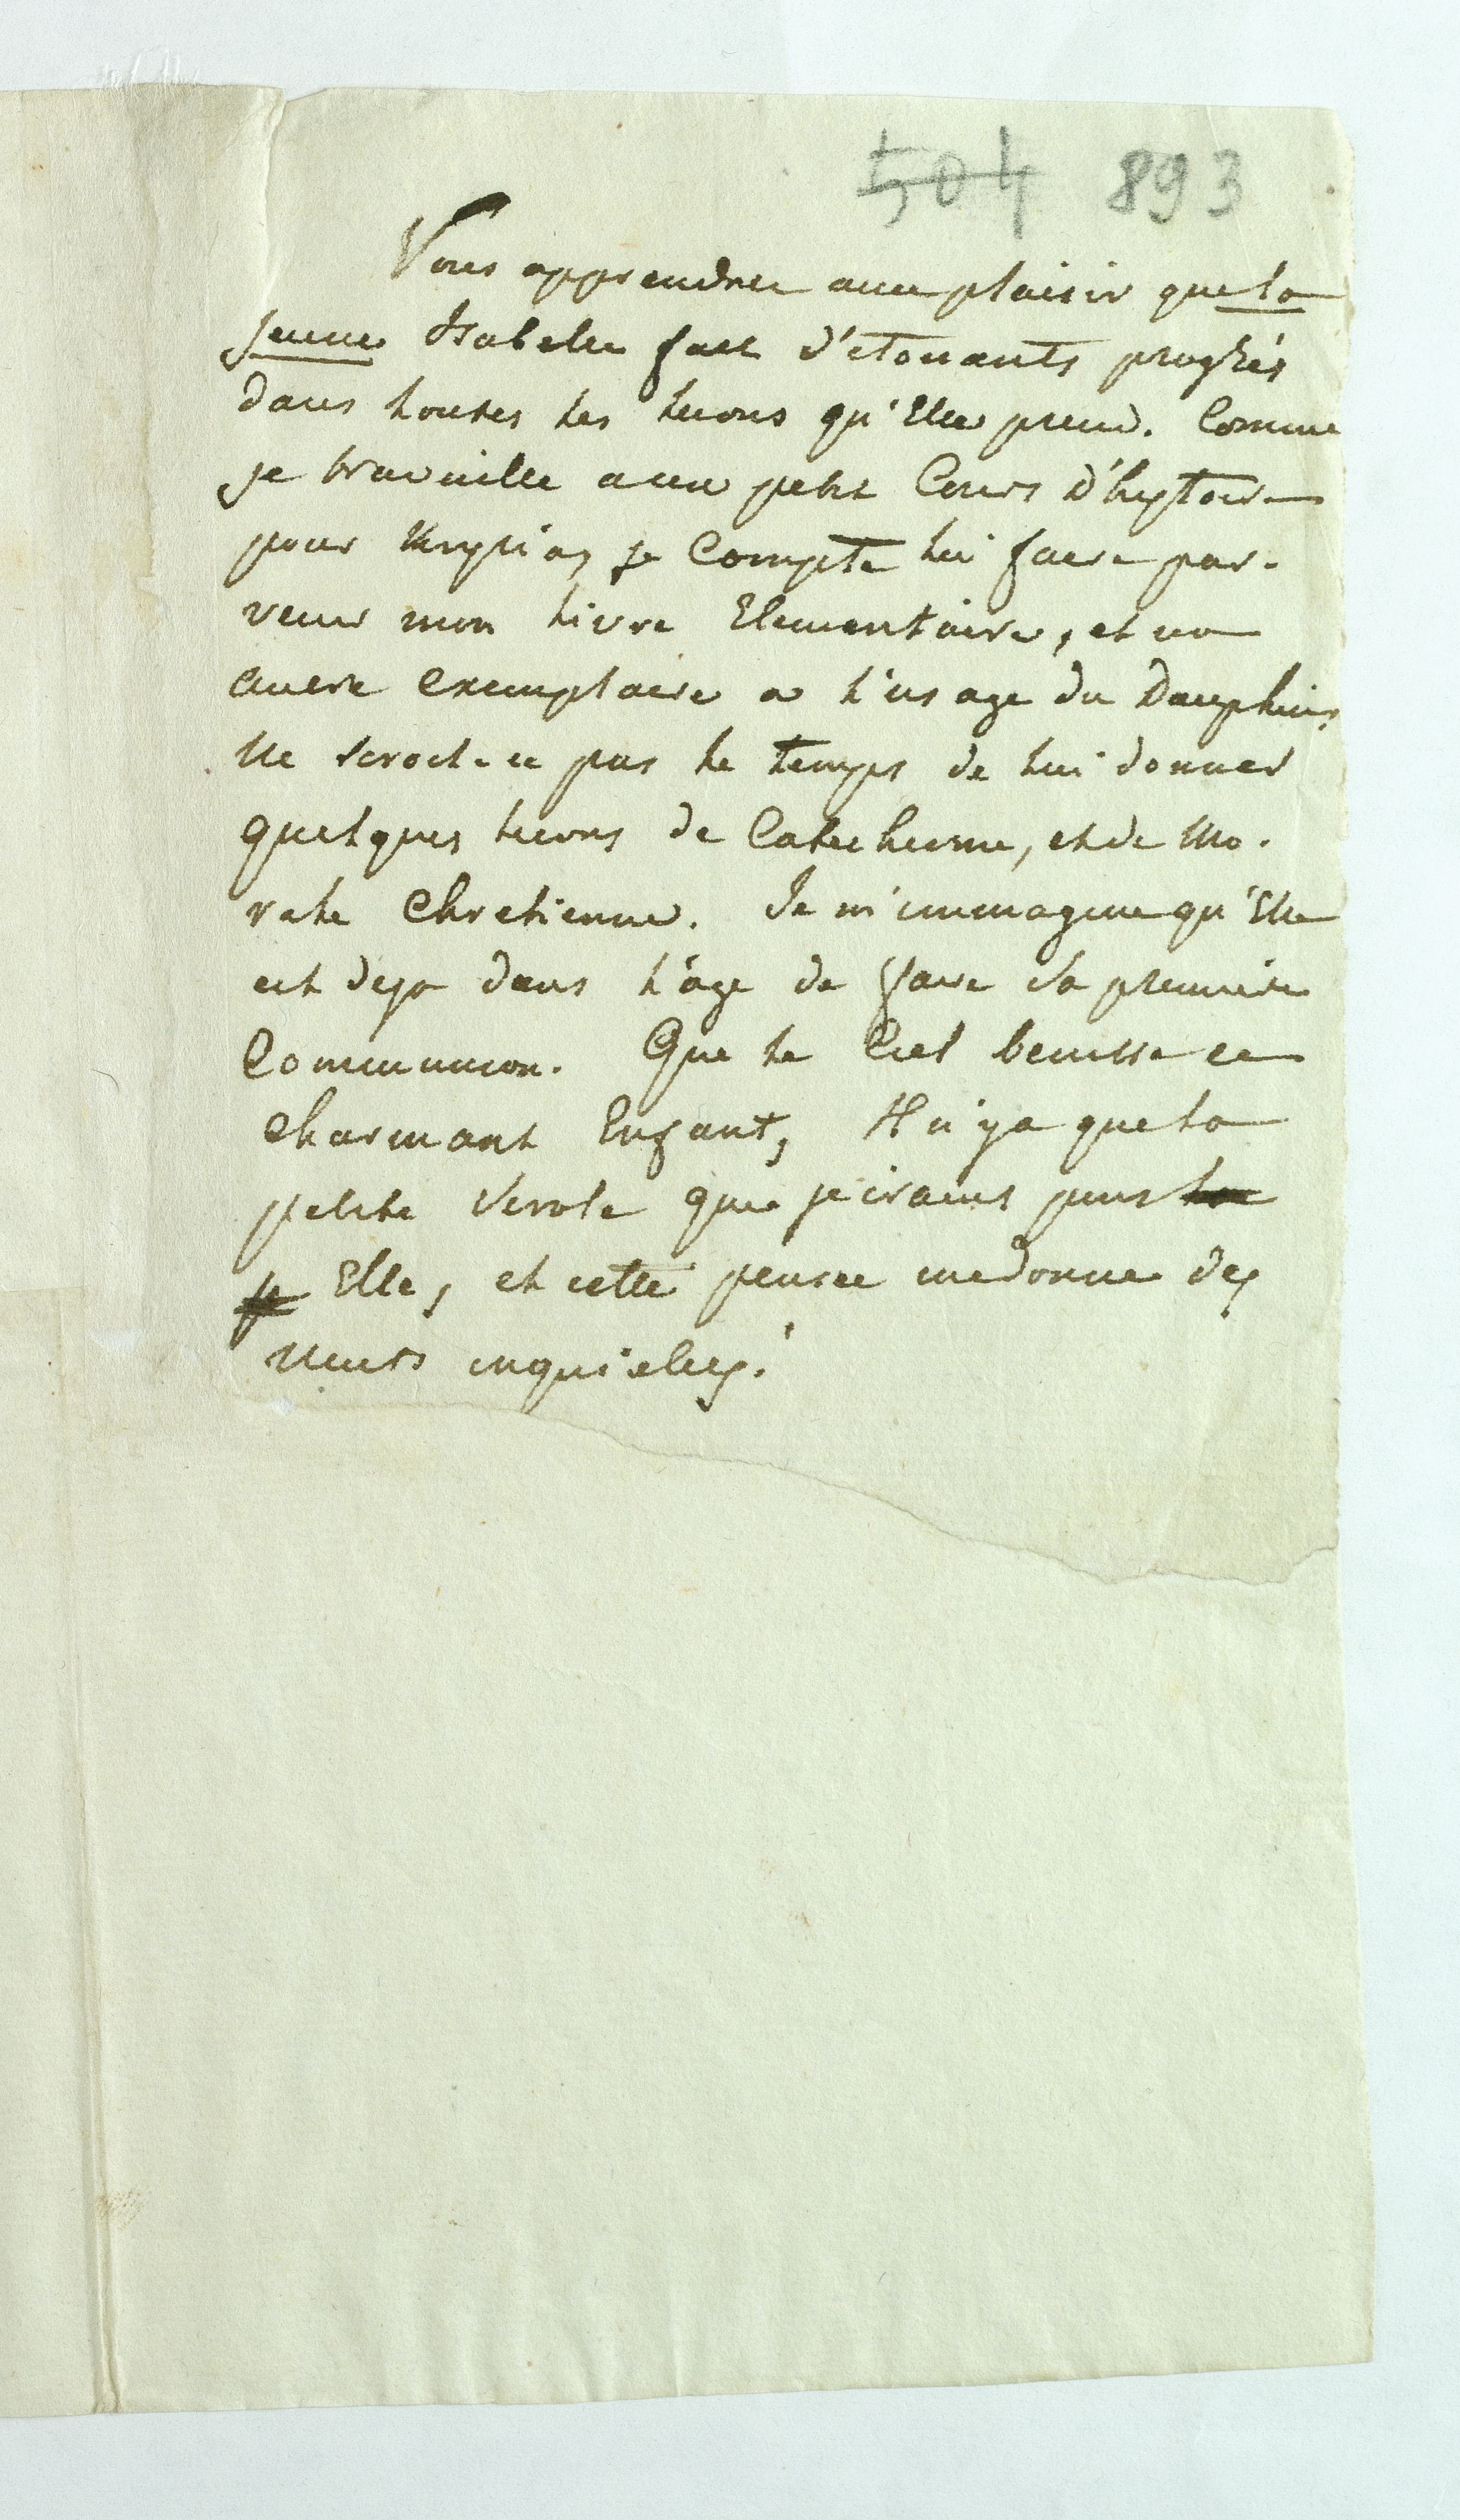 504 893
Vous apprendrez avec plaisir que la
jeune Isabelle fait d'étonants progrés
dans toutes les lecons qu'Elle prend. Comme
je travaille a un petit Cours d'hystoire
pour je Compte lui faire par-
venir mon livre Elementaire, et un
autre exemplaire a l'usage du Dauphin,
Ne seroit-ce pas le temps de lui donner
quelques lecons de Catechisme, et de Mo-
rale Chretienne. Je m'immagine qu'Elle
est deja dans l'age de faire sa premiere
Communion. Que le Ciel benisse ce
charmant Enfant, Il n'y a que la
petite Verole que je crains pour la
p Elle, et cette pensée me donne des
nuits inquietes.